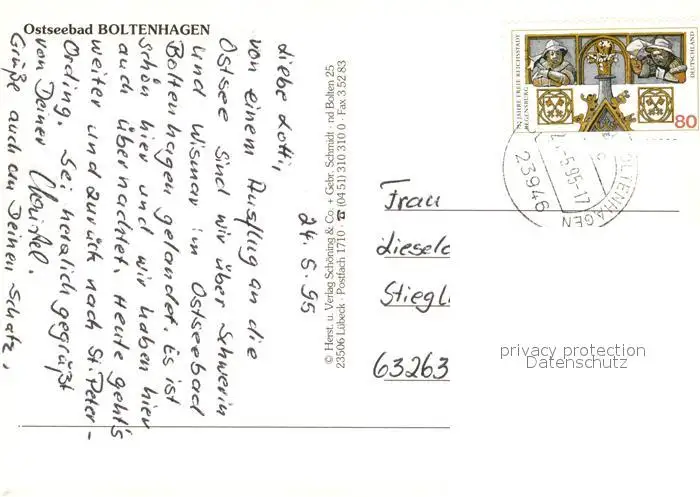 Ostseebad BOLTENHAGEN
24.5.95
Liebe Lotti,
von einem Ausflug an die
Ostsee sind wir über Schwerin
und Wismar im Ostseebad
Boltenhagen gelandet. Es ist
schön hier und wir haben hier
auch übernachtet. Heute geht's
weiter und zurück nach St. Peter-
Ording. Sei herzlich gegrüßt
von Deiner Christel.
Grüße auch an Deinen Schatz.
© Herst. u. Verlag Schöning & Co. + Gebr. Schmidt · nd Bolten 25
23506 Lübeck · Postfach 1710 · ☎ (04 51) 310 310 0 · Fax 3 52 83
750 JAHRE FREIE REICHSSTADT
REGENSBURG
DEUTSCHLAND
80
OLTENHAGEN
5.95-17
23946
Frau
Liesel
Stiegl
63263
privacy protection
Datenschutz